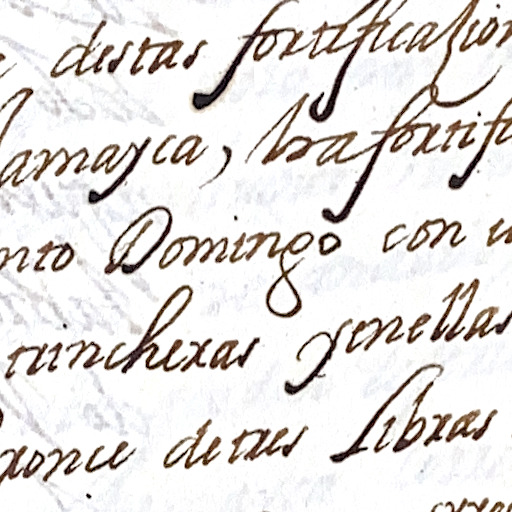 destas fortificazion
Jamayca, la fortifi
nto Domingo con u
trincheras yenellas
Bronce de tres Libras